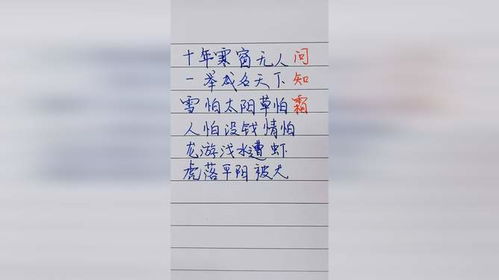 十年寒窗无人问
一举成名天下知
雪怕太阳草怕霜
人怕没钱情怕
龙游浅水遭虾
虎落平阳被犬